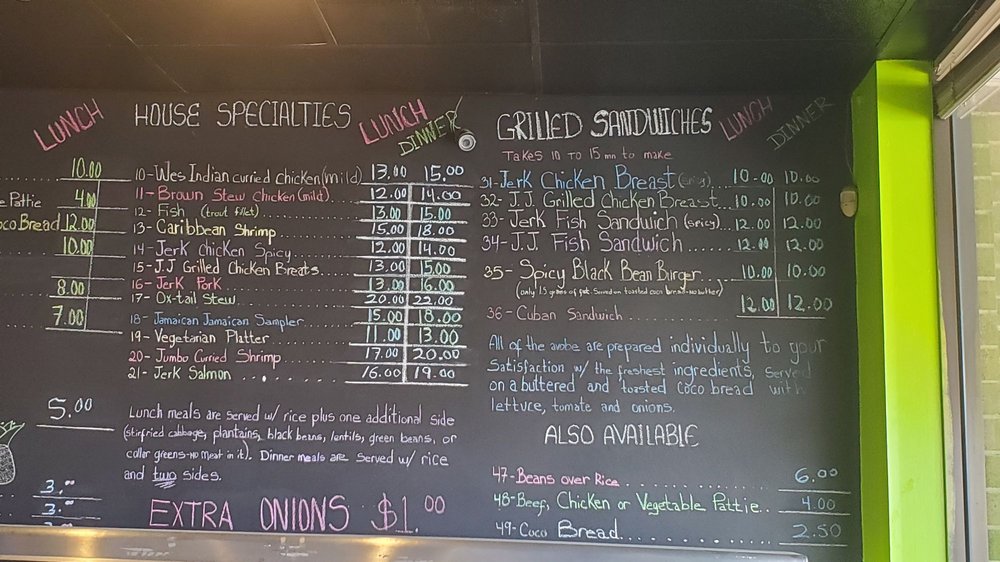 LUNCH
10.00
e Pattie 4.00
oco Bread 12.00
10.00
8.00
7.00
5.00
3.00
3.00
HOUSE SPECIALTIES LUNCH DINNER
10-Wes Indian curried chicken(mild) 13.00 15.00
11-Brown Stew Chicken(mild) 12.00 14.00
12-Fish (trout fillet) 13.00 15.00
13-Caribbean Shrimp 15.00 18.00
14-Jerk Chicken Spicy 12.00 14.00
15-J.J Grilled Chicken Breats 13.00 15.00
16-Jerk Pork 13.00 16.00
17-Ox-tail Stew 20.00 22.00
18-Jamaican Jamaican Sampler 15.00 18.00
19-Vegetarian Platter 11.00 13.00
20-Jumbo Curried Shrimp 17.00 20.00
21-Jerk Salmon 16.00 19.00
Lunch meals are served w/ rice plus one additional side
(stirfried cabbage, plantains, black beans, lentils, green beans, or
coller greens-no meat in it). Dinner meals are served w/ rice
and two sides.
EXTRA ONIONS $1.00
GRILLED SANDWICHES LUNCH DINNER
Takes 10 TO 15 mn to make
31-Jerk Chicken Breast (spicy) 10.00 10.00
32-J.J. Grilled Chicken Breasst 10.00 10.00
33-Jerk Fish Sandwich (spicy) 12.00 12.00
34-J.J. Fish Sandwich 12.00 12.00
35-Spicy Black Bean Burger 10.00 10.00
(only 1.9 grams of fat. Served on toasted coco bread-no butter)
36-Cuban Sandwich 12.00 12.00
All of the avobe are prepared individually to your
Satisfaction w/ the freshest ingredients, Served
on a buttered and toasted Coco bread with
lettvce, tomate and onions.
ALSO AVAILABLE
47-Beans over Rice 6.00
48-Beef, Chicken or Vegetable Pattie 4.00
49-Coco Bread 2.50